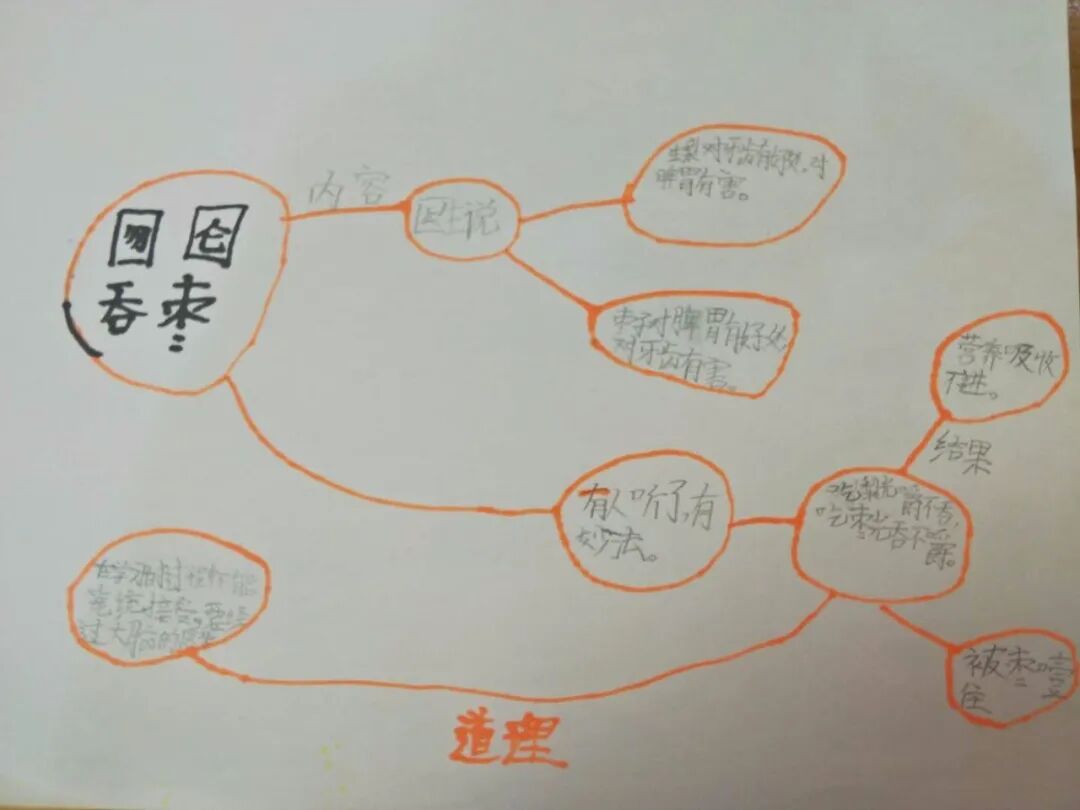 囫囵
吞枣
内容
医生说
生梨对牙齿有好处,对
脾胃有害。
枣子对脾胃有好处
对牙齿有害。
有人听了,有
妙法。
吃梨光嚼不吞,
吃枣光吞不嚼。
结果
营养吸收
不进。
被枣噎
住
道理
在学习时过程不能
笼统接受,要经
过大脑的